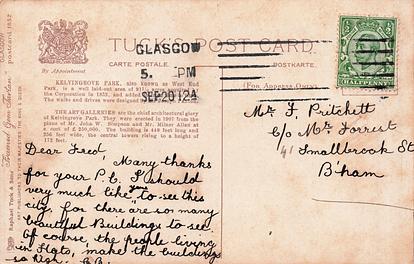 TUCK'S POST CARD
CARTE POSTALE
POSTKARTE.
By Appointment
(For Address Only)
GLASGOW
5. PM
SEP 20 12 A
HALFPENNY
KELVINGROVE PARK, also known as West End
Park, is a well laid-out area of
the Corporation in 1852, and added
The walks and drives were designed
THE ART GALLERIES are the chief architectural glory
of Kelvingrove Park. They were erected in 1901 from the
designs of Mr. John W. Simpson and Mr. Milner Allen at
a cost of £ 250,000. The building is 448 feet long and
256 feet wide, the central towers rising to a height of
172 feet.
Raphael Tuck & Sons'
Mr F. Pritchett
C/o Mrs Forrest
41 Smallbrook St
B'ham
Dear Fred,
Many thanks
for your P.C. I should
very much like you to see this
city, for there are so many
beautiful Buildings to see.
Of course, the people living
in flats, make the buildings
so high.